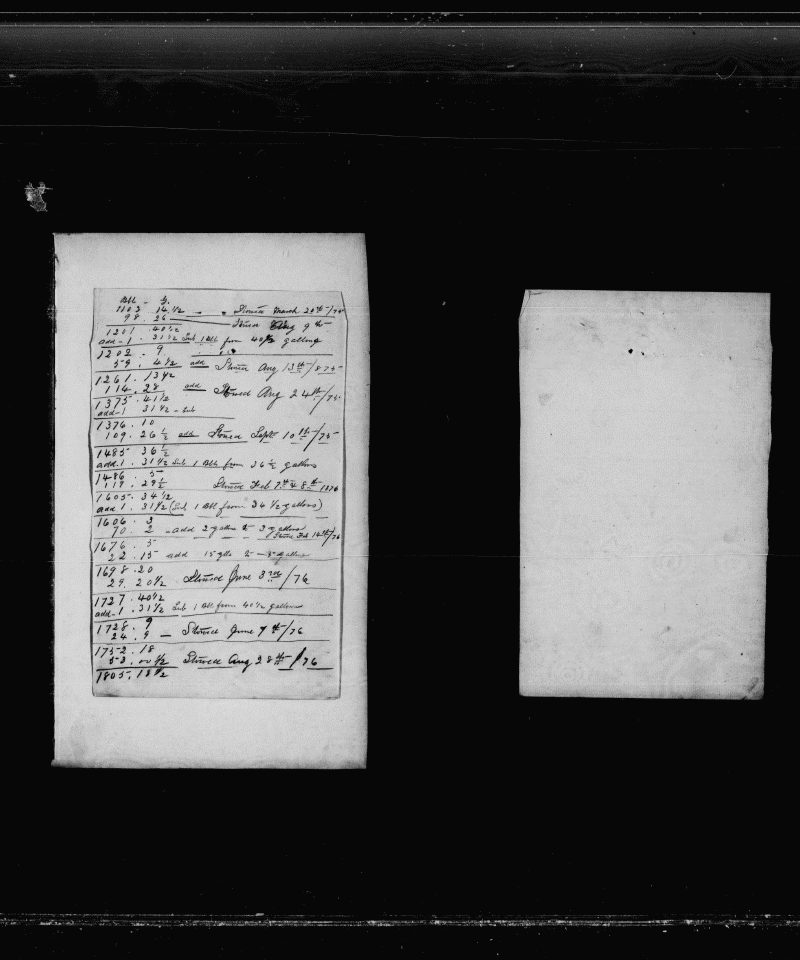 Bbl - g.
1103 14 1/2 - " Stored March 20th/75
98 26
Stored Aug 9th
1201 40 1/2
add-1 . 31 1/2 Sub 1 Bbl from 40 1/2 gallons
1202 . 9
59 . 4 1/2 add Stored Aug 13th/875
1261 . 13 1/2
114 . 28 add Stored Aug 24th/75
1375 . 41 1/2
add-1 31 1/2 - Sub
1376 . 10
109 . 26 1/2 add Stored Sept 10th/75
1485 36 1/2
add . 1 . 31 1/2 Sub 1 Bbl from 36 1/2 gallons
1486 5
119 . 29 1/2 Stored Feb 7th & 8th 1876
1605 . 34 1/2
add 1 . 31 1/2 (Sub 1 Bbl from 34 1/2 gallons)
1606 . 3
70 . 2 - add 2 gallons to 3 gallons
Stored Feb 14th/76
1676 . 5
22 . 15 add 15 galls to 5 gallons
1698 . 20
29 . 20 1/2 . Stored June 3rd/76
1727 . 40 1/2
add-1 . 31 1/2 Sub 1 Bbl from 40 1/2 gallons
1728 . 9
24 . 9 - Stored June 7th/76
1752 . 18
53 . 00 1/2 Stored Aug 28th/76
1805 . 18 1/2